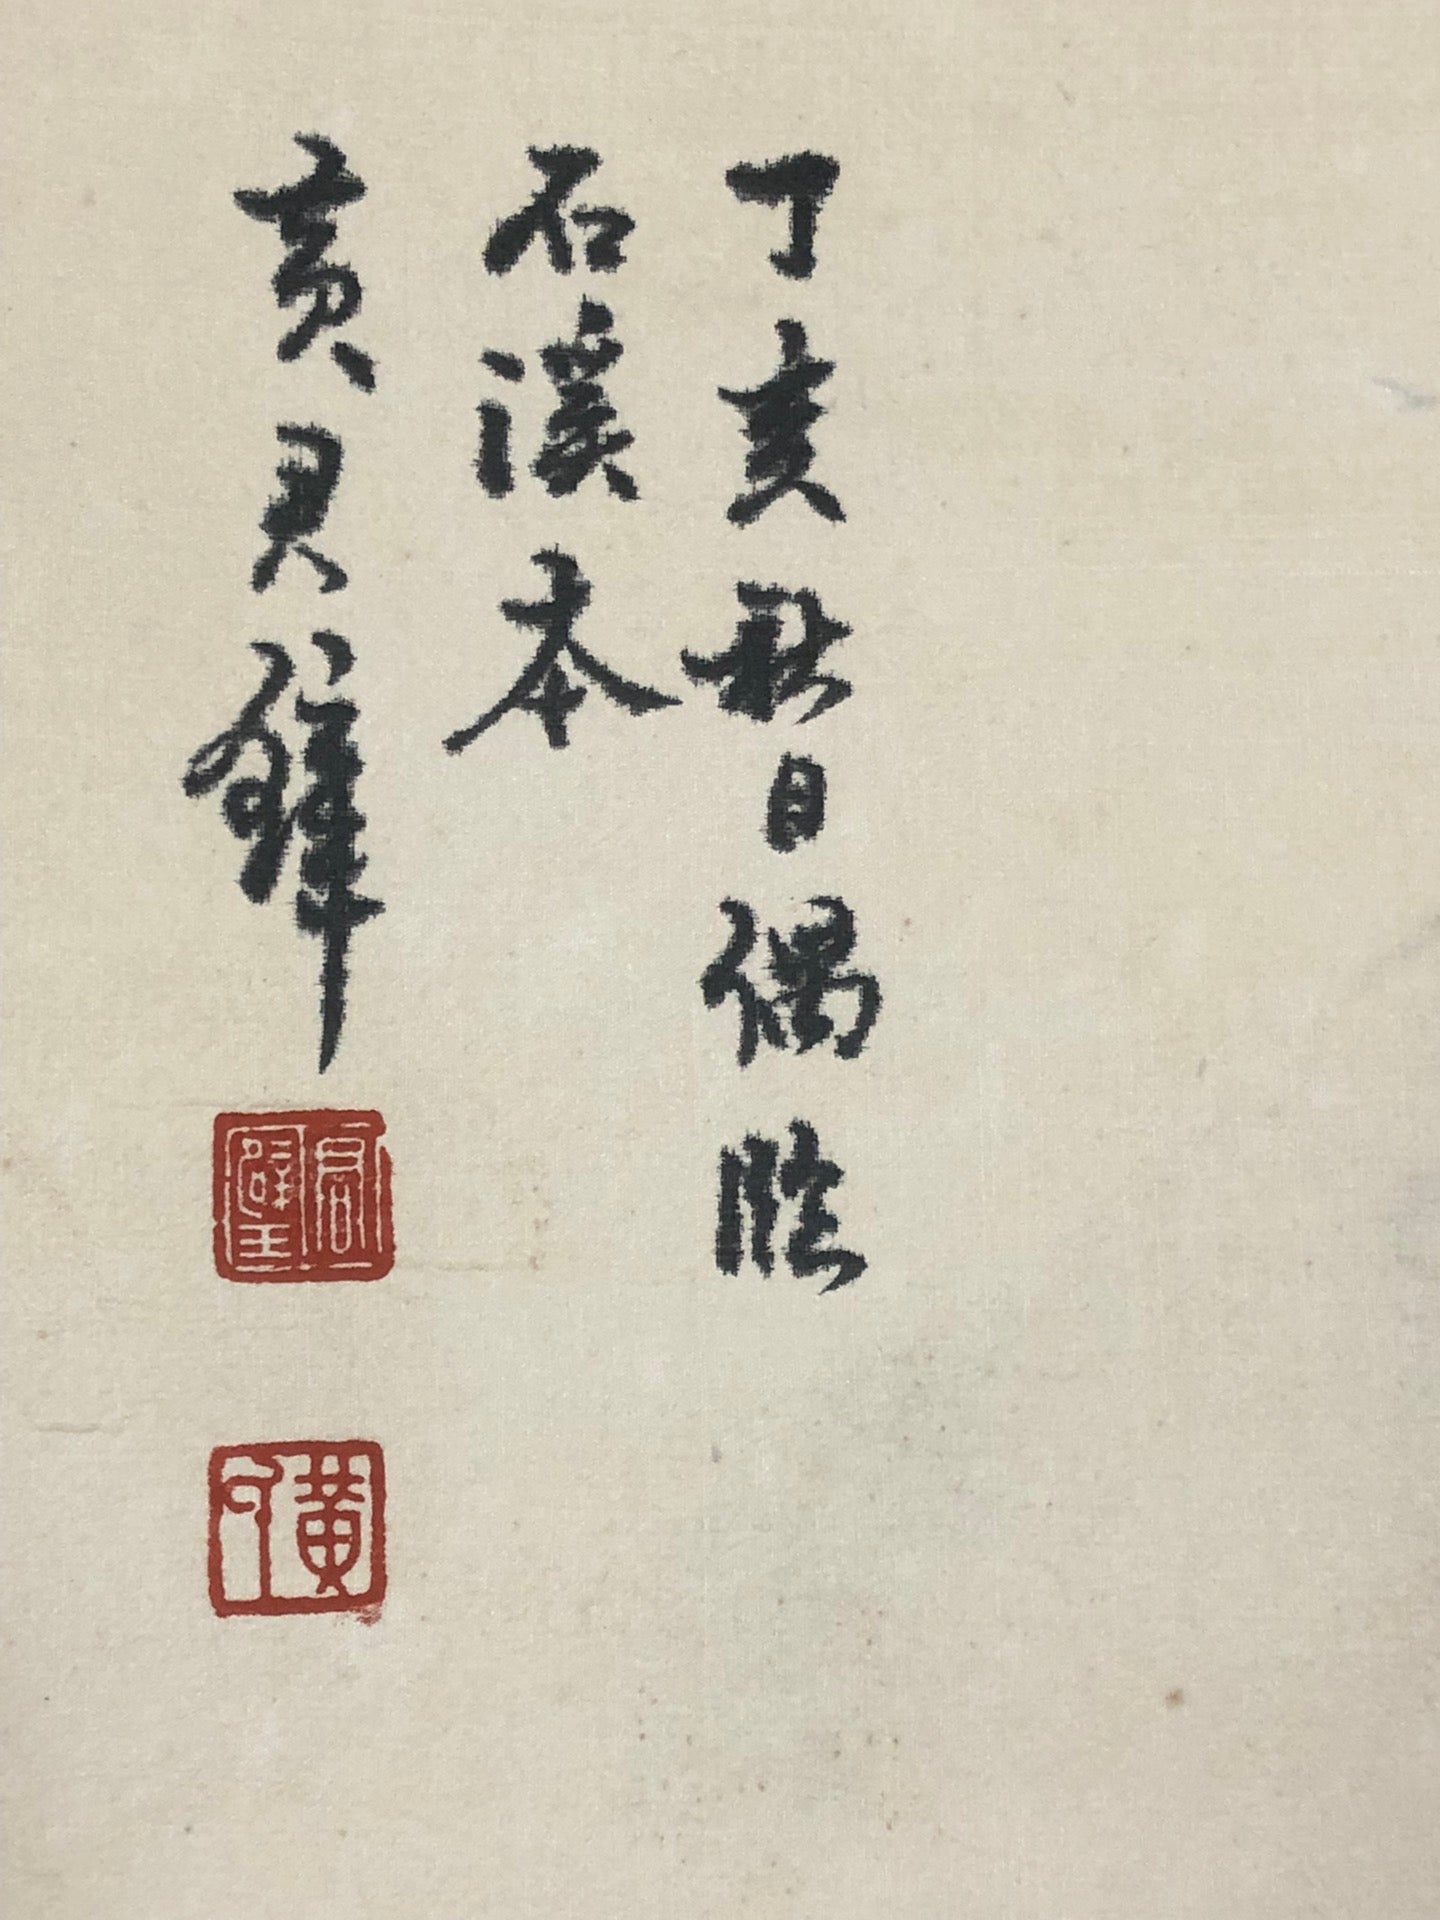 丁亥秋日偶臨
石溪本
黃君璧
君璧
黃